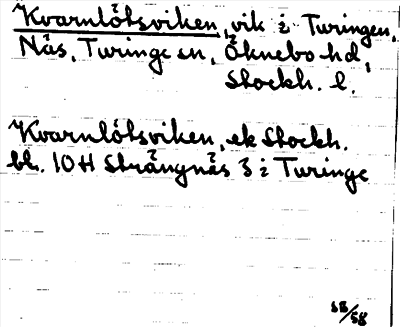 Kvarnlötsviken, vik i Turingen,
Näs, Turinge sn, Öknebo hd,
Stockh. l.
Kvarnlötsviken, ek Stockh.
bl. 10H Strängnäs 3 i Turinge
58